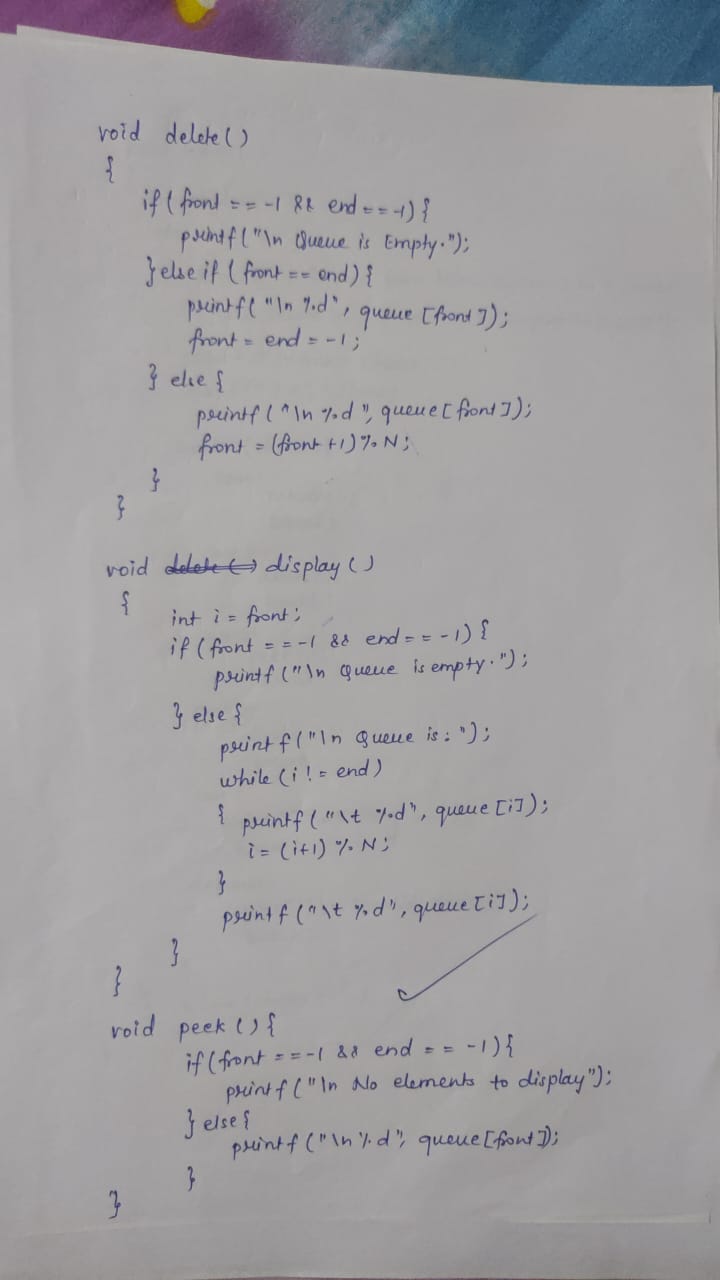 void delete()
{
if(front == -1 && end == -1){
printf("\n Queue is Empty.");
}else if (front == end){
printf("\n %d", queue[front]);
front = end = -1;
} else {
printf("\n %d", queue[front]);
front = (front+1)%N;
}
}
void delete() display()
{
int i = front;
if(front == -1 && end == -1){
printf("\n Queue is empty.");
} else {
printf("\n Queue is: ");
while(i != end)
{ printf("\t %d", queue[i]);
i = (i+1) % N;
}
printf("\t %d", queue[i]);
}
}
void peek(){
if(front == -1 && end == -1){
printf("\n No elements to display");
} else {
printf("\n %d", queue[front]);
}
}